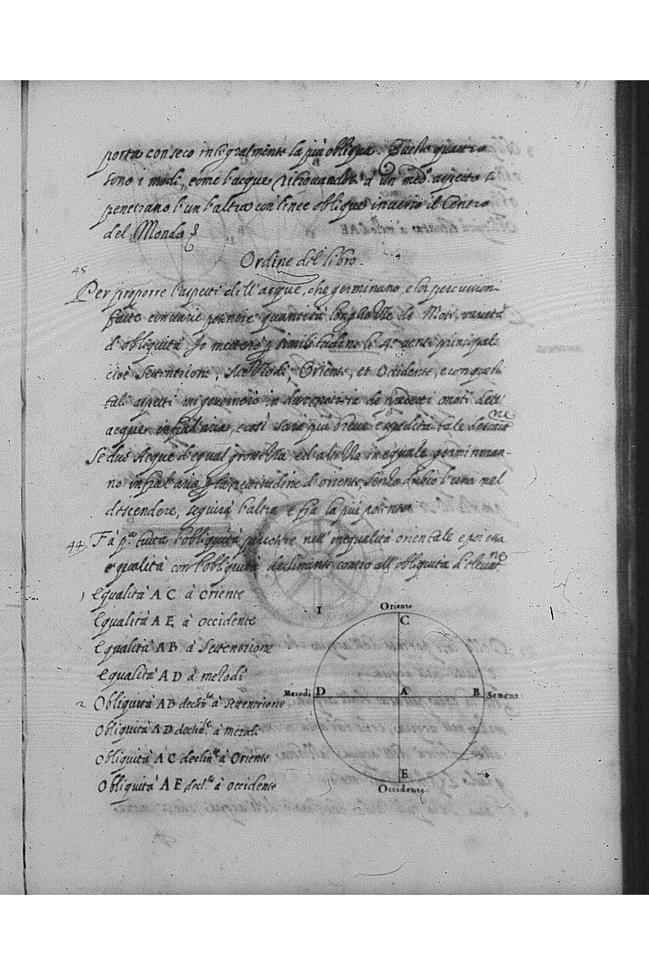 porta con seco integralmente la più obliqua. Queste quattro
sono i modi, come l'acque ritrovandosi d'un med.º aspetto si
penetrano l'un l'altra con linee oblique inverso il Centro
del Mondo
Ordine del libro.
45
Per proporre l'aspetti dell'acque, che germinano, e lor percussion
fatte
d'obliquità Io mettere p similitudine le 4º venti principali
cioè Settentrione, Mezodi Oriente, et Occidente, e con questi
tali aspetti mi governerò in dare notitia de predetti moti dell'
acque infra l'aria, e così sarà più breve e spedita tale descriti
ne
Se due Acque d'equal grossezza, ed altezza inequale perminuran-
no infra l'aria p la rettitudine d'oriente, senza dubio l'una nel
discendere, seguirà l'altra e fia la più potente
44 Fà pª tutta l'obliquità in oriente nell'inequalità orientale e poi essa
equalità con l'obliquità declinante contro all'obliquità d'elevatne
1 Equalità A C à Oriente
Equalità A E à Occidente
Equalità A B à Settentrione
Equalità A D à mezodi
2 Obliquità A B declinta à settentrione
Obliquità A D declinta à mezodi
Obliquità A C declinta à Oriente
Obliquità A E declta à occidente
1
Oriente
C
Mezodi D A B Settent
E
Occidente